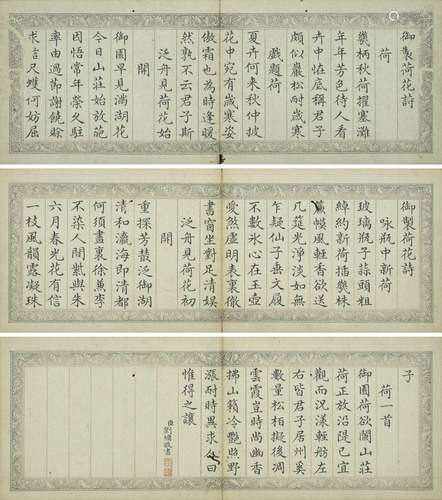 御製荷花詩
荷
幾柄秋荷擢塞灘
年年芳色待人看
卉中恠底稱君子
頗似嚴松耐歲寒
戲題荷
夏卉何來秋仲披
花中宛有歲寒姿
傲霜也為時逢暖
然孰不云君子斯
泛舟見荷花始
開
御園早見滿湖花
今日山莊始放葩
因悟常年蒞久駐
率由過節謝饒賒
求言尺蠖何妨屈
御製荷花詩
咏瓶中新荷
玻璃瓶子蒜頭粗
綽約新荷插幾株
簾幙風輕香欲送
几筵光淨淡如無
乍疑仙子垂文履
不數氷心在玉壺
愛然虛明表裏徹
書窗坐對足清娛
泛舟見荷花初
開
重探芳叢泛御湖
清和瀛海即清都
何須畫裏徐熙
不染人間氣與朱
六月春光花有信
一枝風韻露凝珠
子
荷一首
御園荷欲闌山莊
荷正放沿隄已宜
觀而況漾輕舫左
右皆君子居州奚
數量松柏擬後凋
雲霞豈時尚幽香
拂山籟冷艷照野
漲耐時異求曰
惟得之讓
臣劉墉敬書